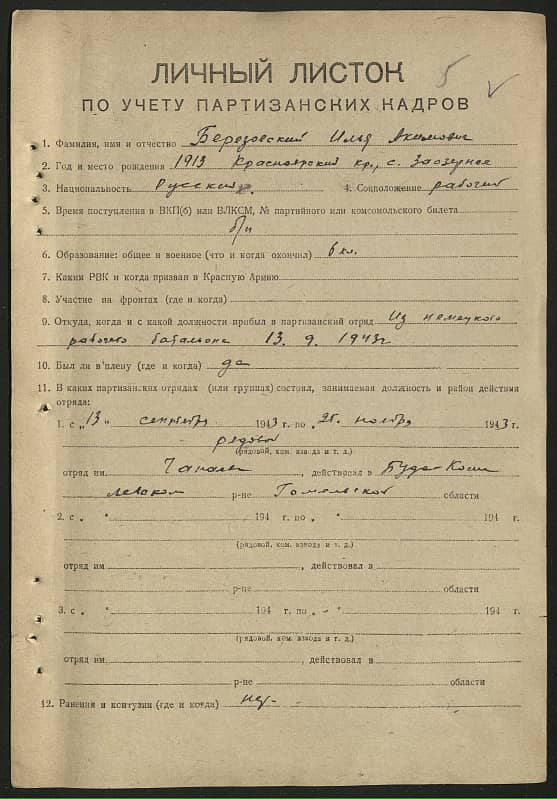 5 v
ЛИЧНЫЙ ЛИСТОК
ПО УЧЕТУ ПАРТИЗАНСКИХ КАДРОВ
1. Фамилия, имя и отчество Березовский Илья Акимович
2. Год и место рождения 1913 Красноярский кр., с. Заозерное
3. Национальность Русский 4. Соцположение рабочий
5. Время поступления в ВКП(б) или ВЛКСМ, № партийного или комсомольского билета
б/п
6. Образование: общее и военное (что и когда окончил) 6 кл.
7. Каким РВК и когда призван в Красную Армию
8. Участие на фронтах (где и когда)
9. Откуда, когда и с какой должности прибыл в партизанский отряд Из немецкого
рабочего батальона 13. 9. 1943 г
10. Был ли в плену (где и когда) да
11. В каких партизанских отрядах (или группах) состоял, занимаемая должность и район действия
отряда:
1. с „13" сентября 1943 г. по 26. ноября 1943 г.
рядовой
(рядовой, ком. взвода и т. д.)
отряд им. Чапаева, действовал в Буда-Коше
левском р-не Гомельской области
2. с „ " 194 г. по „ " 194 г.
(рядовой, ком. взвода и т. д.)
отряд им, действовал в
р-не области
3. с „ " 194 г. по „ - " 194 г.
(рядовой, ком. взвода и т. д.)
отряд им., действовал в
р-не области
12. Ранения и контузии (где и когда) нет-